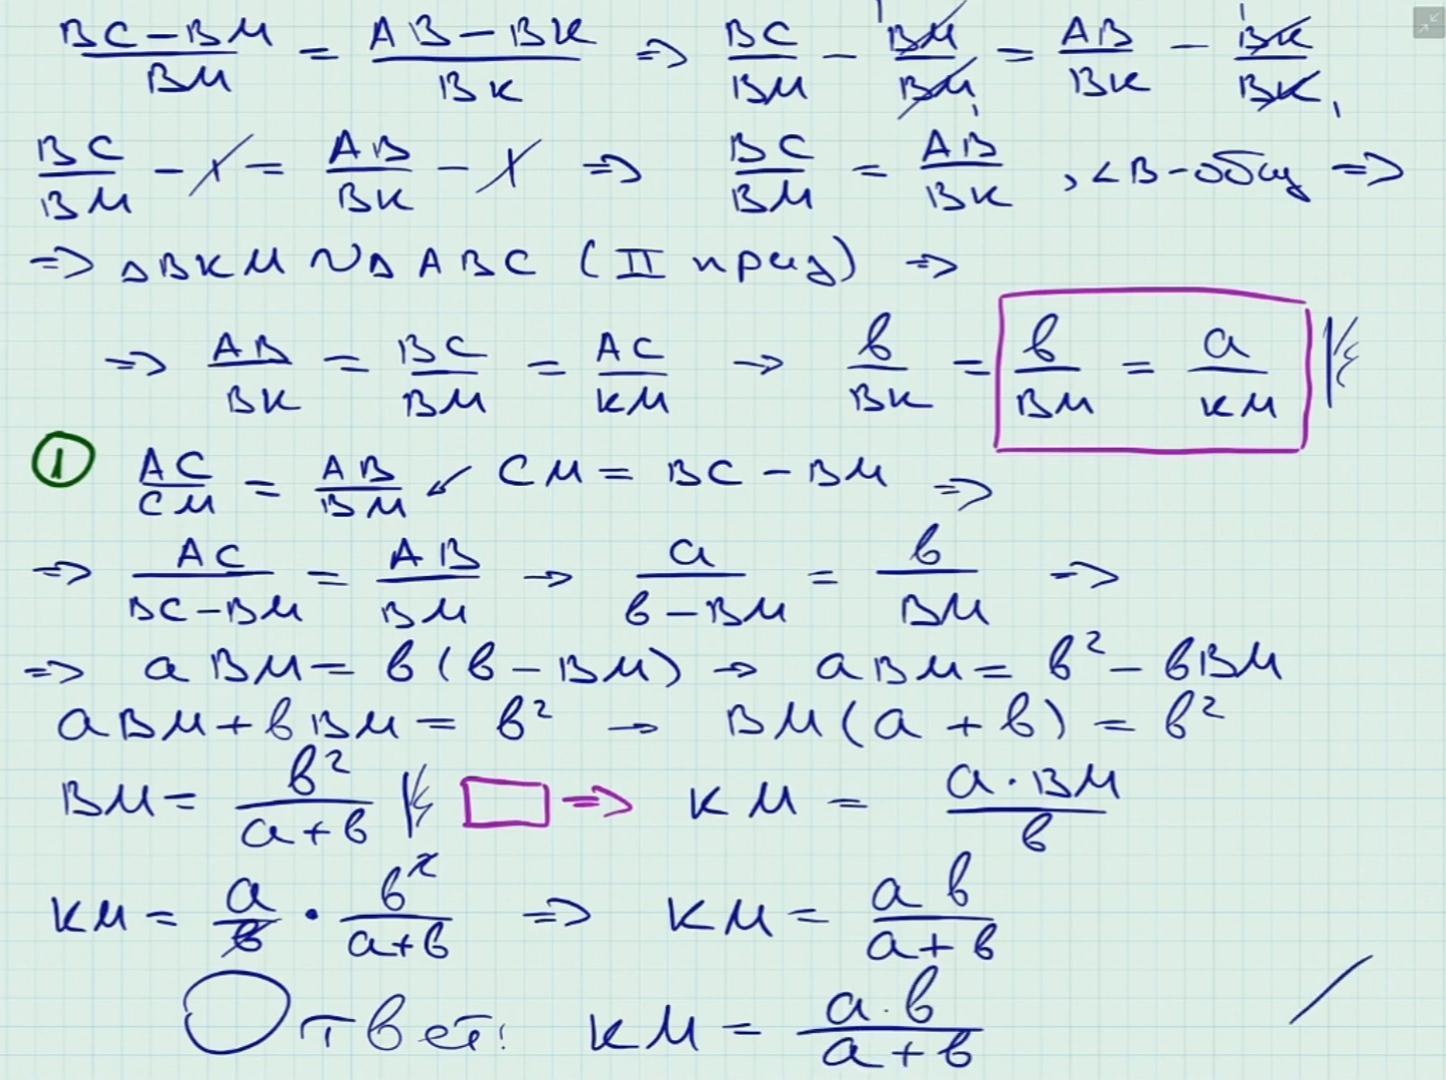 (BC-BM)/BM = (AB-BK)/BK => BC/BM - BM/BM = AB/BK - BK/BK
BC/BM - 1 = AB/BK - 1 => BC/BM = AB/BK , ∠B-общ =>
=> △BKM ~ △ABC (II приз) =>
=> AB/BK = BC/BM = AC/KM → в/BK = в/BM = a/KM
① AC/CM = AB/BM ↙ CM = BC - BM =>
=> AC/(BC-BM) = AB/BM → a/(в-BM) = в/BM =>
=> a BM = в(в-BM) → aBM = в² - вBM
aBM + вBM = в² → BM(a+в) = в²
BM = в²/(a+в) => KM = a·BM/в
KM = a/в · в²/(a+в) => KM = aв/(a+в)
Ответ: KM = a·в/(a+в)